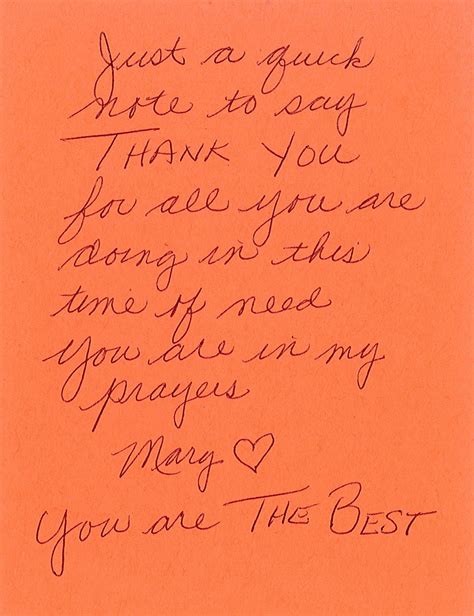 Just a quick
note to say
THANK YOU
for all you are
doing in this
time of need
You are in my
prayers
Mary ♡
You are THE BEST